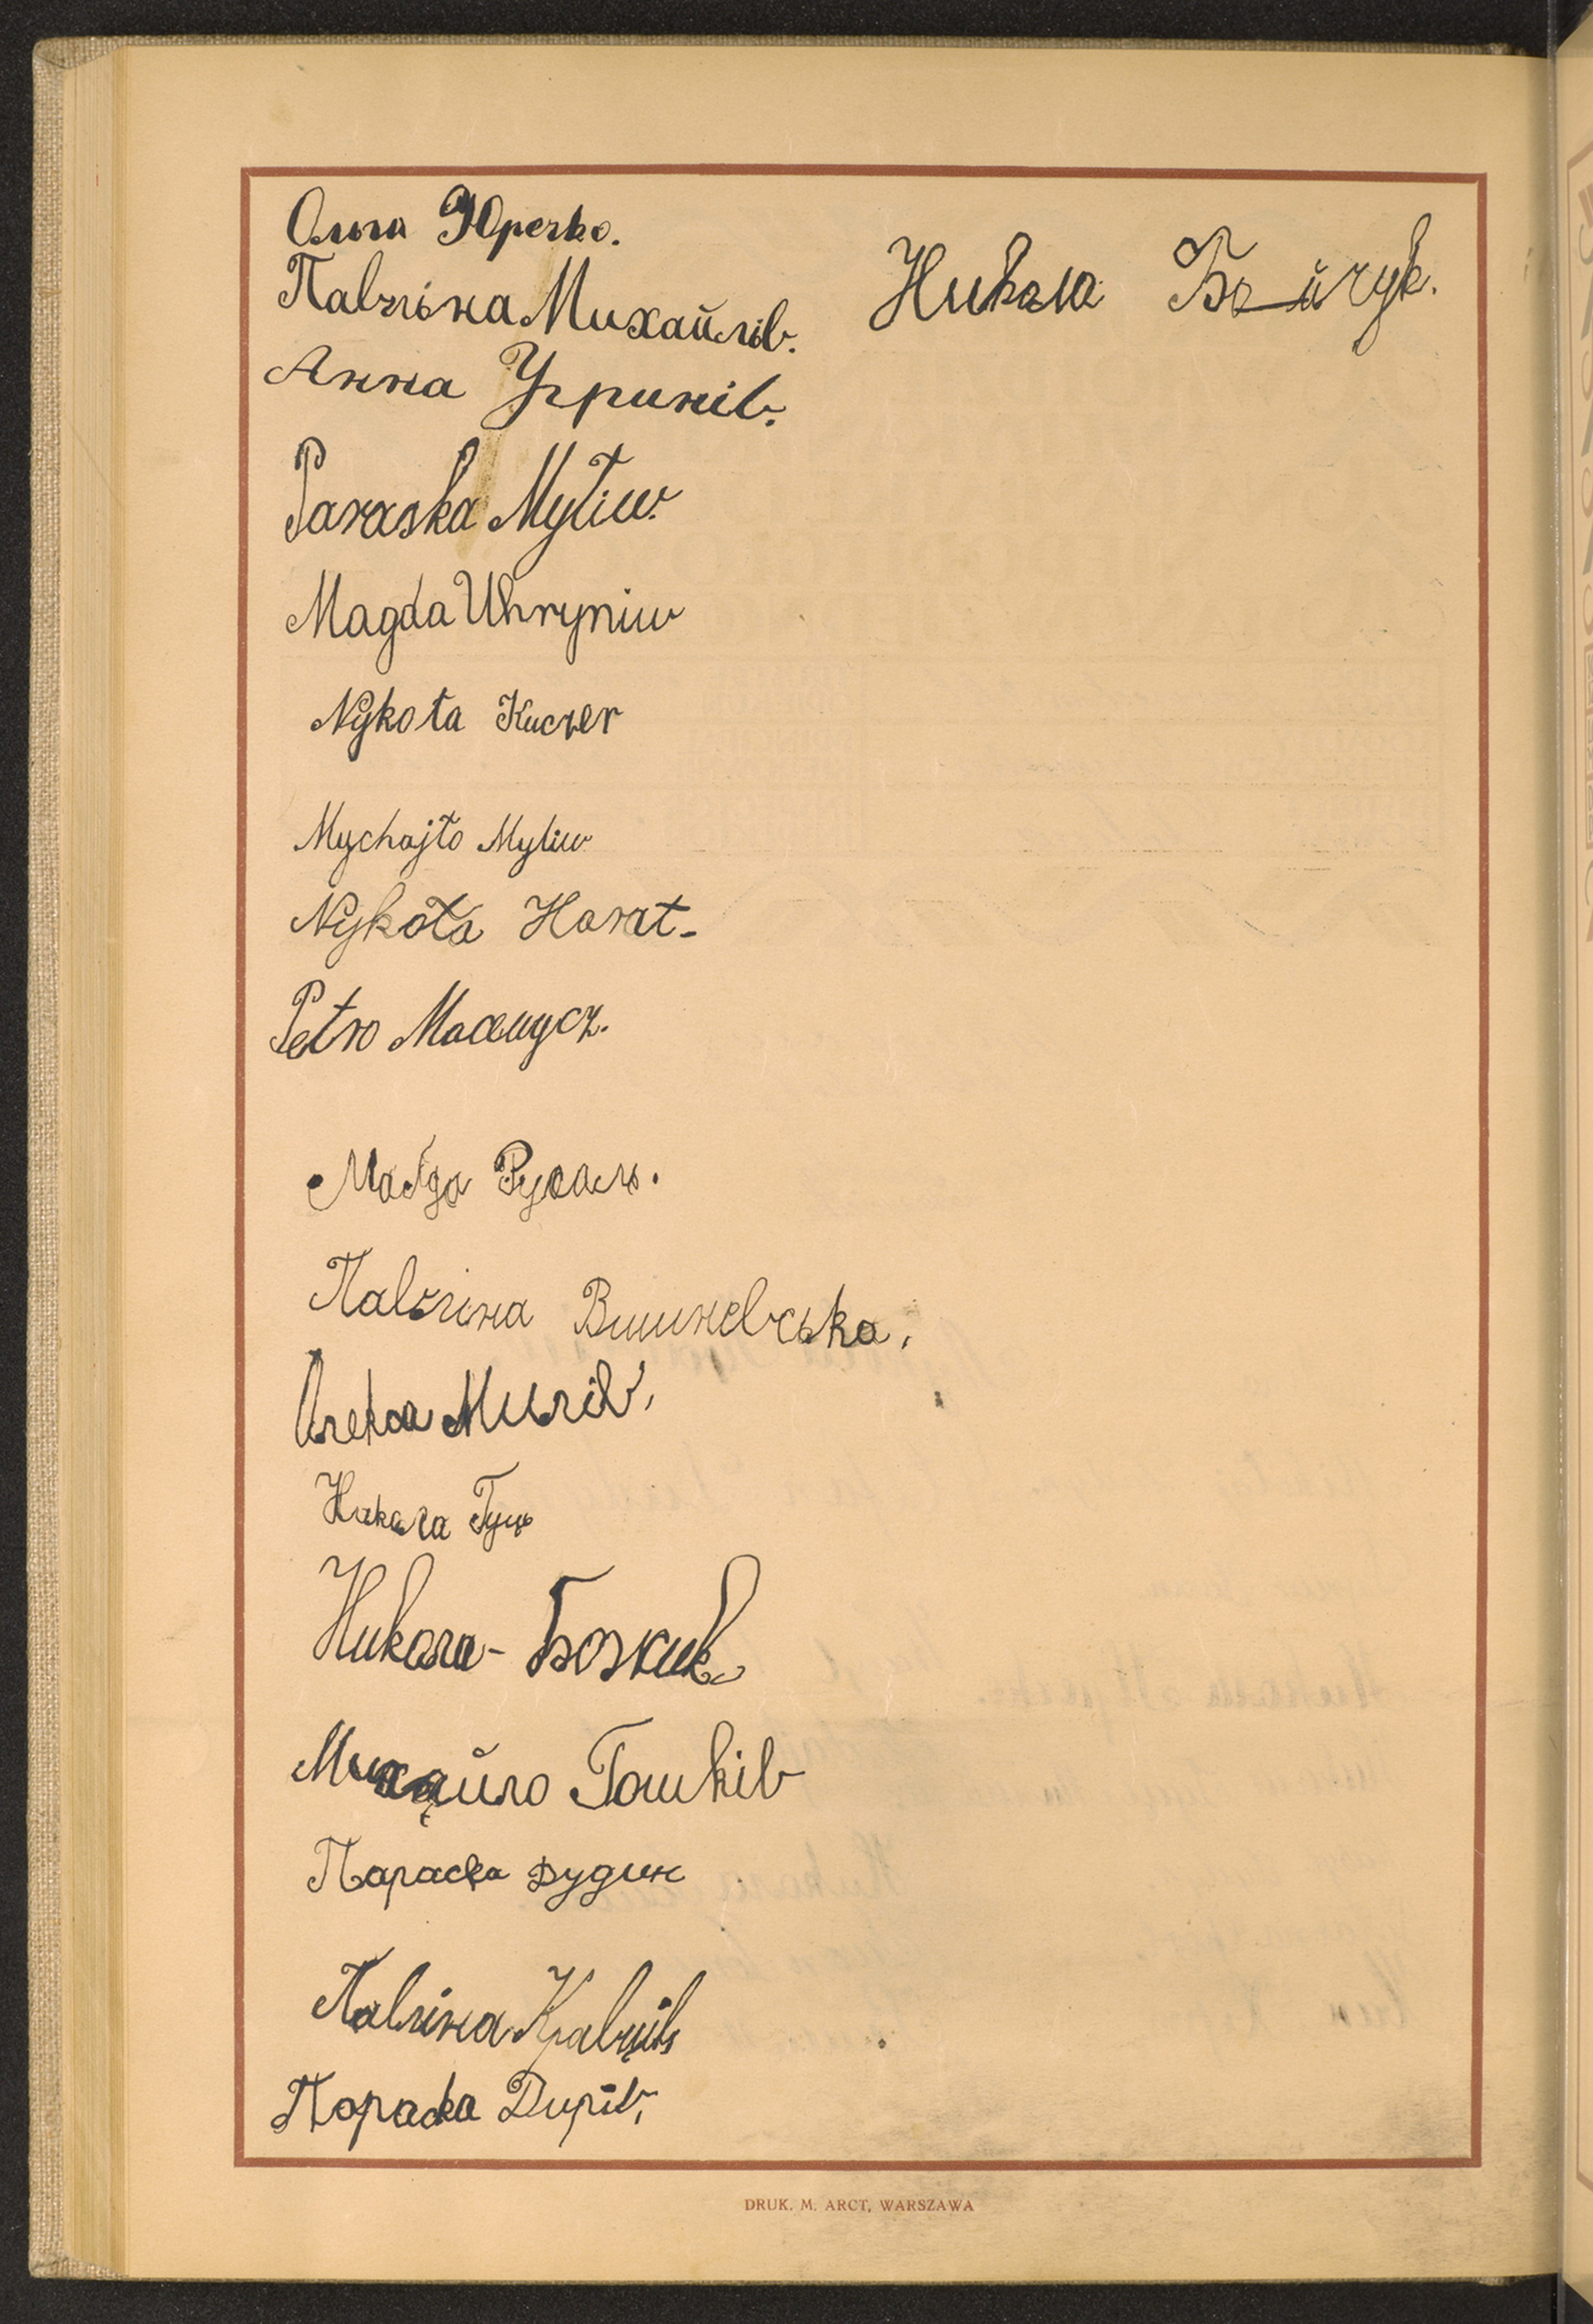 Ольга Юречко.
Павліна Михайлів.
Никола Бойчук.
Анна Угринів.
Paraska Mytiw.
Magda Uhryniw
Nykoła Kuczer
Mychajło Myliw
Nykoła Horat-
Petro Macewycz.
Маґда Рухаль.
Павліна Вишневська.
Олекса Милів,
Никола Гуць
Никола-Божик
Михайло Гошків
Параска Дудин
Павліна Кравців
Параска Дирів,
DRUK. M. ARCT, WARSZAWA